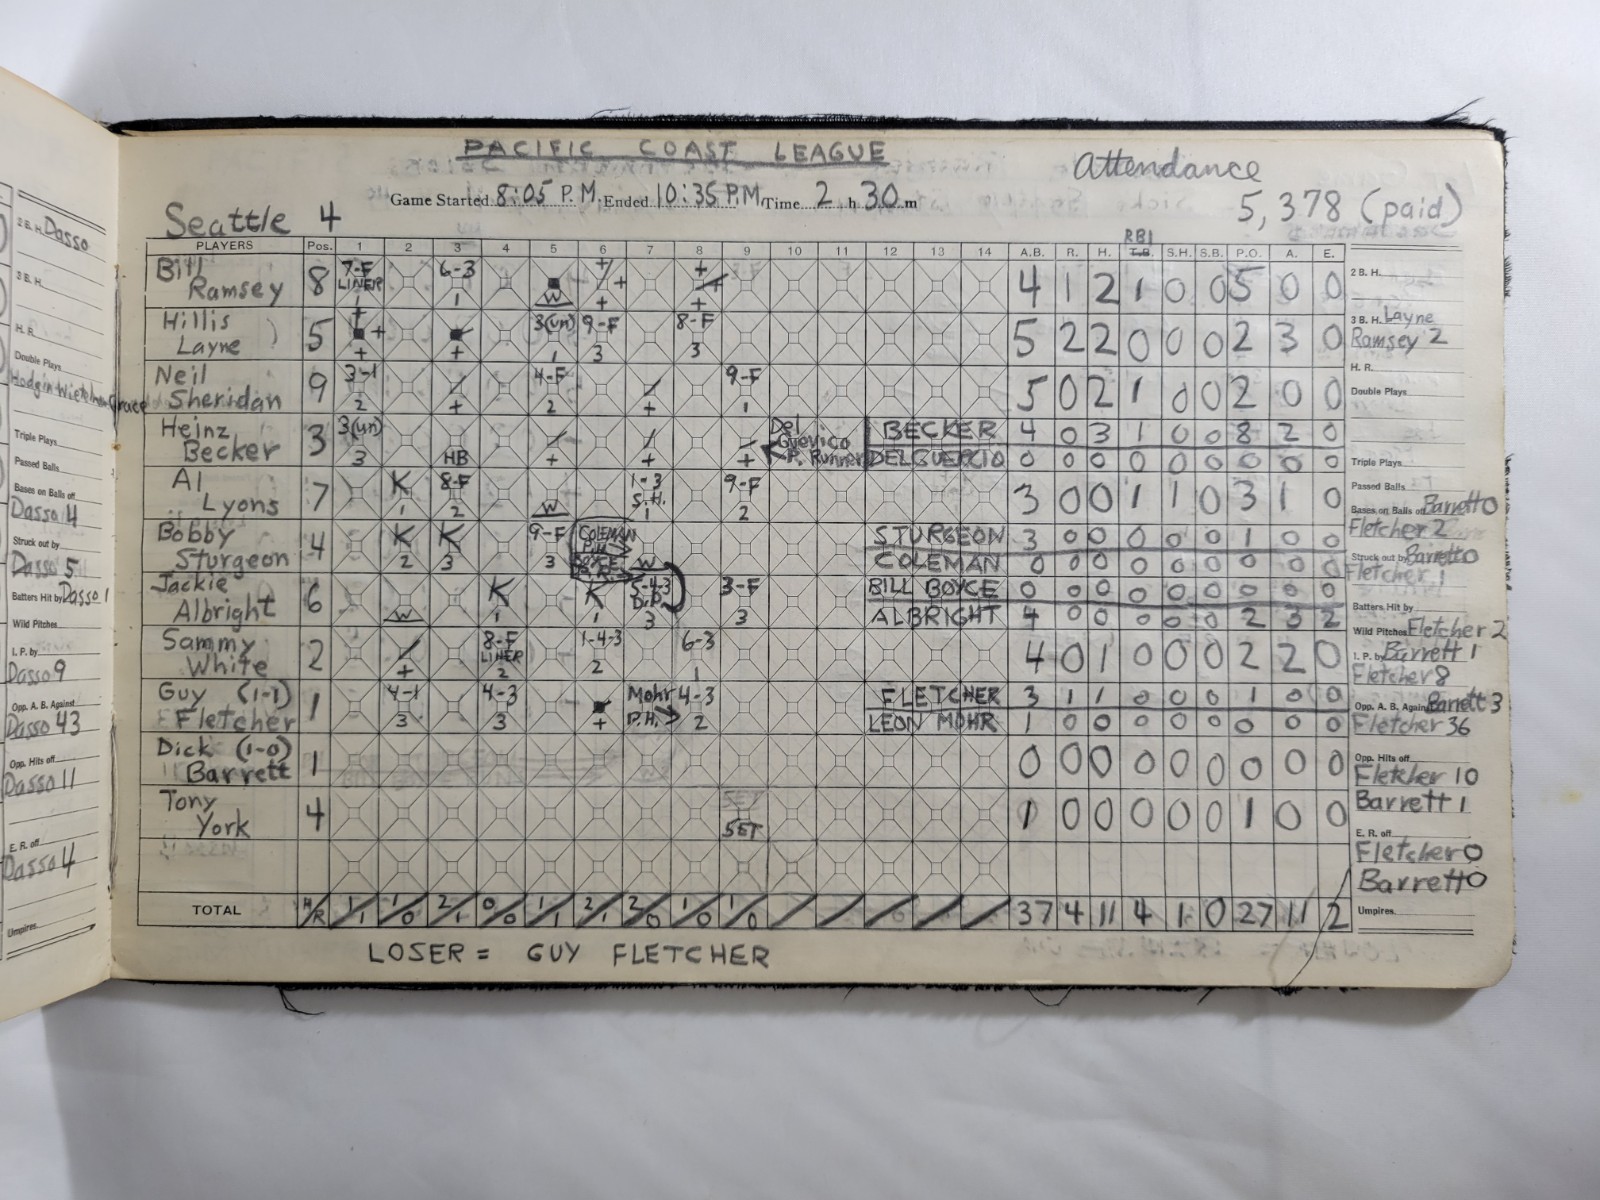 PACIFIC COAST LEAGUE
Attendance
5,378 (paid)
Game Started 8:05 P.M. Ended 10:35 P.M. Time 2 h 30 m
Seattle 4
RBI
PLAYERS Pos. 1 2 3 4 5 6 7 8 9 10 11 12 13 14 A.B. R. H. T.B. S.H. S.B. P.O. A. E.
Bill Ramsey 8 7-F LINER 1 6-3 1 W 4 1 2 1 0 0 5 0 0
Hillis Layne 5 3(un) 1 9-F 3 8-F 3 5 2 2 0 0 0 2 3 0
Neil Sheridan 9 3-1 2 4-F 2 9-F 1 5 0 2 1 0 0 2 0 0
Heinz Becker 3 3(un) 3 HB Del Guerico P. Runner BECKER 4 0 3 1 0 0 8 2 0
DELGUERCIO 0 0 0 0 0 0 0 0 0
Al Lyons 7 K 1 8-F 2 W 1-3 S.H. 1 9-F 2 3 0 0 1 1 0 3 1 0
Bobby Sturgeon 4 K 2 K 3 9-F 3 COLEMAN W STURGEON 3 0 0 0 0 0 1 0 0
COLEMAN 0 0 0 0 0 0 0 0 0
BILL BOYCE 0 0 0 0 0 0 0 0 0
Jackie Albright 6 W K 1 K 1 5-4-3 D.P. 3 3-F 3 ALBRIGHT 4 0 0 0 0 0 2 3 2
Sammy White 2 8-F LINER 2 1-4-3 2 6-3 1 4 0 1 0 0 0 2 2 0
Guy (1-1) Fletcher 1 4-1 3 4-3 3 Mohr P.H. 4-3 2 FLETCHER 3 1 1 0 0 0 1 0 0
LEON MOHR 1 0 0 0 0 0 0 0 0
Dick (1-0) Barrett 1 0 0 0 0 0 0 0 0 0
Tony York 4 SET 1 0 0 0 0 0 1 0 0
TOTAL H/R 1/1 1/0 2/1 0/0 1/1 2/1 2/0 1/0 1/0 37 4 11 4 1 0 27 11 2
LOSER = GUY FLETCHER
2 B. H.
3 B. H. Layne
Ramsey 2
H. R.
Double Plays
Triple Plays
Passed Balls
Bases on Balls off Barrett 0
Fletcher 2
Struck out by Barrett 0
Fletcher 1
Batters Hit by
Wild Pitches Fletcher 2
I. P. by Barrett 1
Fletcher 8
Opp. A. B. Against Barrett 3
Fletcher 36
Opp. Hits off
Fletcher 10
Barrett 1
E. R. off
Fletcher 0
Barrett 0
Umpires
2 B. H. Dasso
3 B. H.
H. R.
Double Plays
Triple Plays
Passed Balls
Bases on Balls off
Dasso 4
Struck out by
Dasso 5
Batters Hit by Dasso 1
Wild Pitches
I. P. by
Dasso 9
Opp. A. B. Against
Dasso 43
Opp. Hits off
Dasso 11
E. R. off
Dasso 4
Umpires